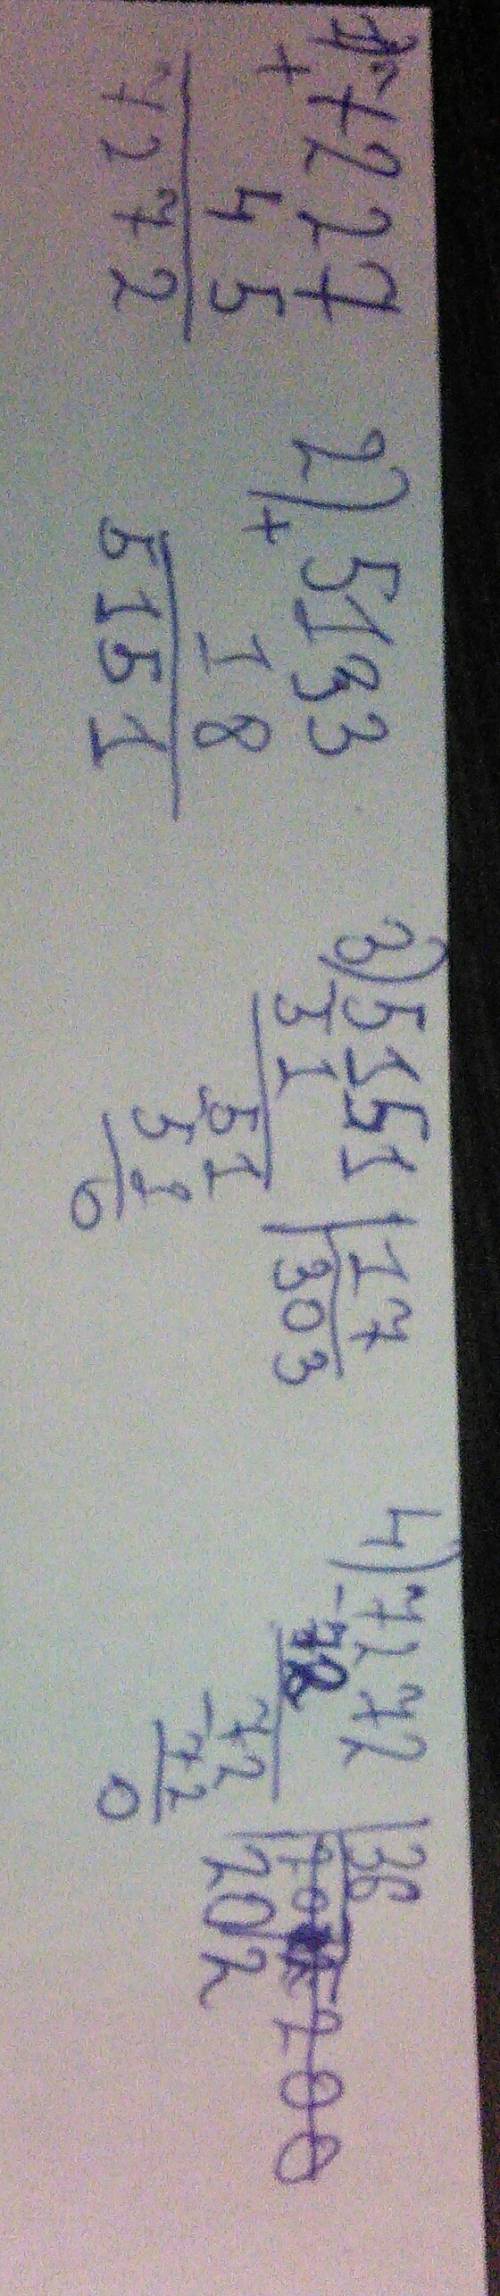 1) 7227
+
45
7272
2) 5133
+
18
5151
3) 5151 | 17
51 | 303
51
51
0
4) 7272 | 36
-72
202
72
-72
0